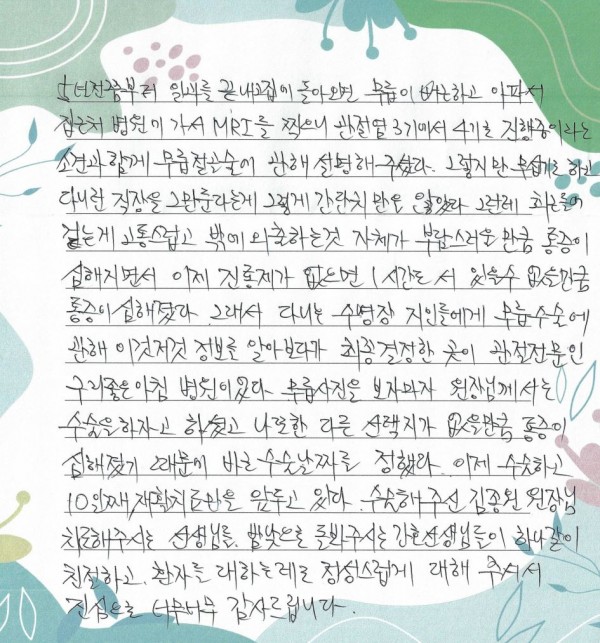 5년전쯤부터 일과를 끝내고 집에 돌아오면 무릎이 뻐근하고 아파서
집근처 병원에 가서 MRI를 찍으니 관절염 3기에서 4기로 진행중이라는
소견과 함께 무릎절골술에 관해 설명해주셨다. 그렇지만 무섭기도 하고
다니던 직장을 그만둔다는게 그렇게 간단치만은 않았다 그런데 최근들어
걷는게 고통스럽고 밖에 외출하는것 자체가 부담스러운 만큼 통증이
심해지면서 이제 진통제가 없으면 1시간도 서 있을수 없을만큼
통증이 심해졌다. 그래서 다니는 수영장 지인들에게 무릎수술에
관해 이것저것 정보를 알아보다가 최종결정한 곳이 관절전문인
구리좋은아침 병원이었다. 무릎사진을 보자마자 원장님께서는
수술을 하자고 하셨고 나또한 다른 선택지가 없을만큼 통증이
심해졌기 때문에 바로 수술날짜를 정했다. 이제 수술하고
10일째, 재활치료만을 앞두고 있다. 수술해주신 김종원 원장님
치료해주시는 선생님들, 밤낮으로 돌봐주시는 간호선생님들이 하나같이
친절하고, 환자를 대하는데도 정성스럽게 대해 주셔서
진심으로 너무너무 감사드립니다.